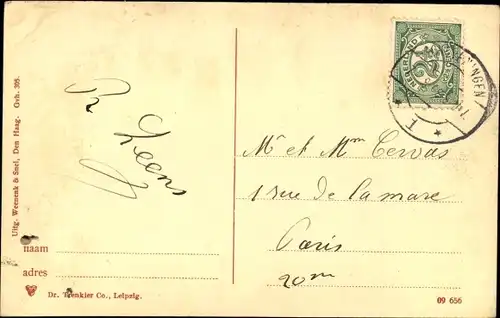 Uitg. Weenenk & Snel, Den Haag. Gvh. 305.
R. Leens
naam
adres
Dr. Trenkler Co., Leipzig.
NEDERLAND
Mr et Mme Cervas
1 rue de la mare
Paris
20me
09 656